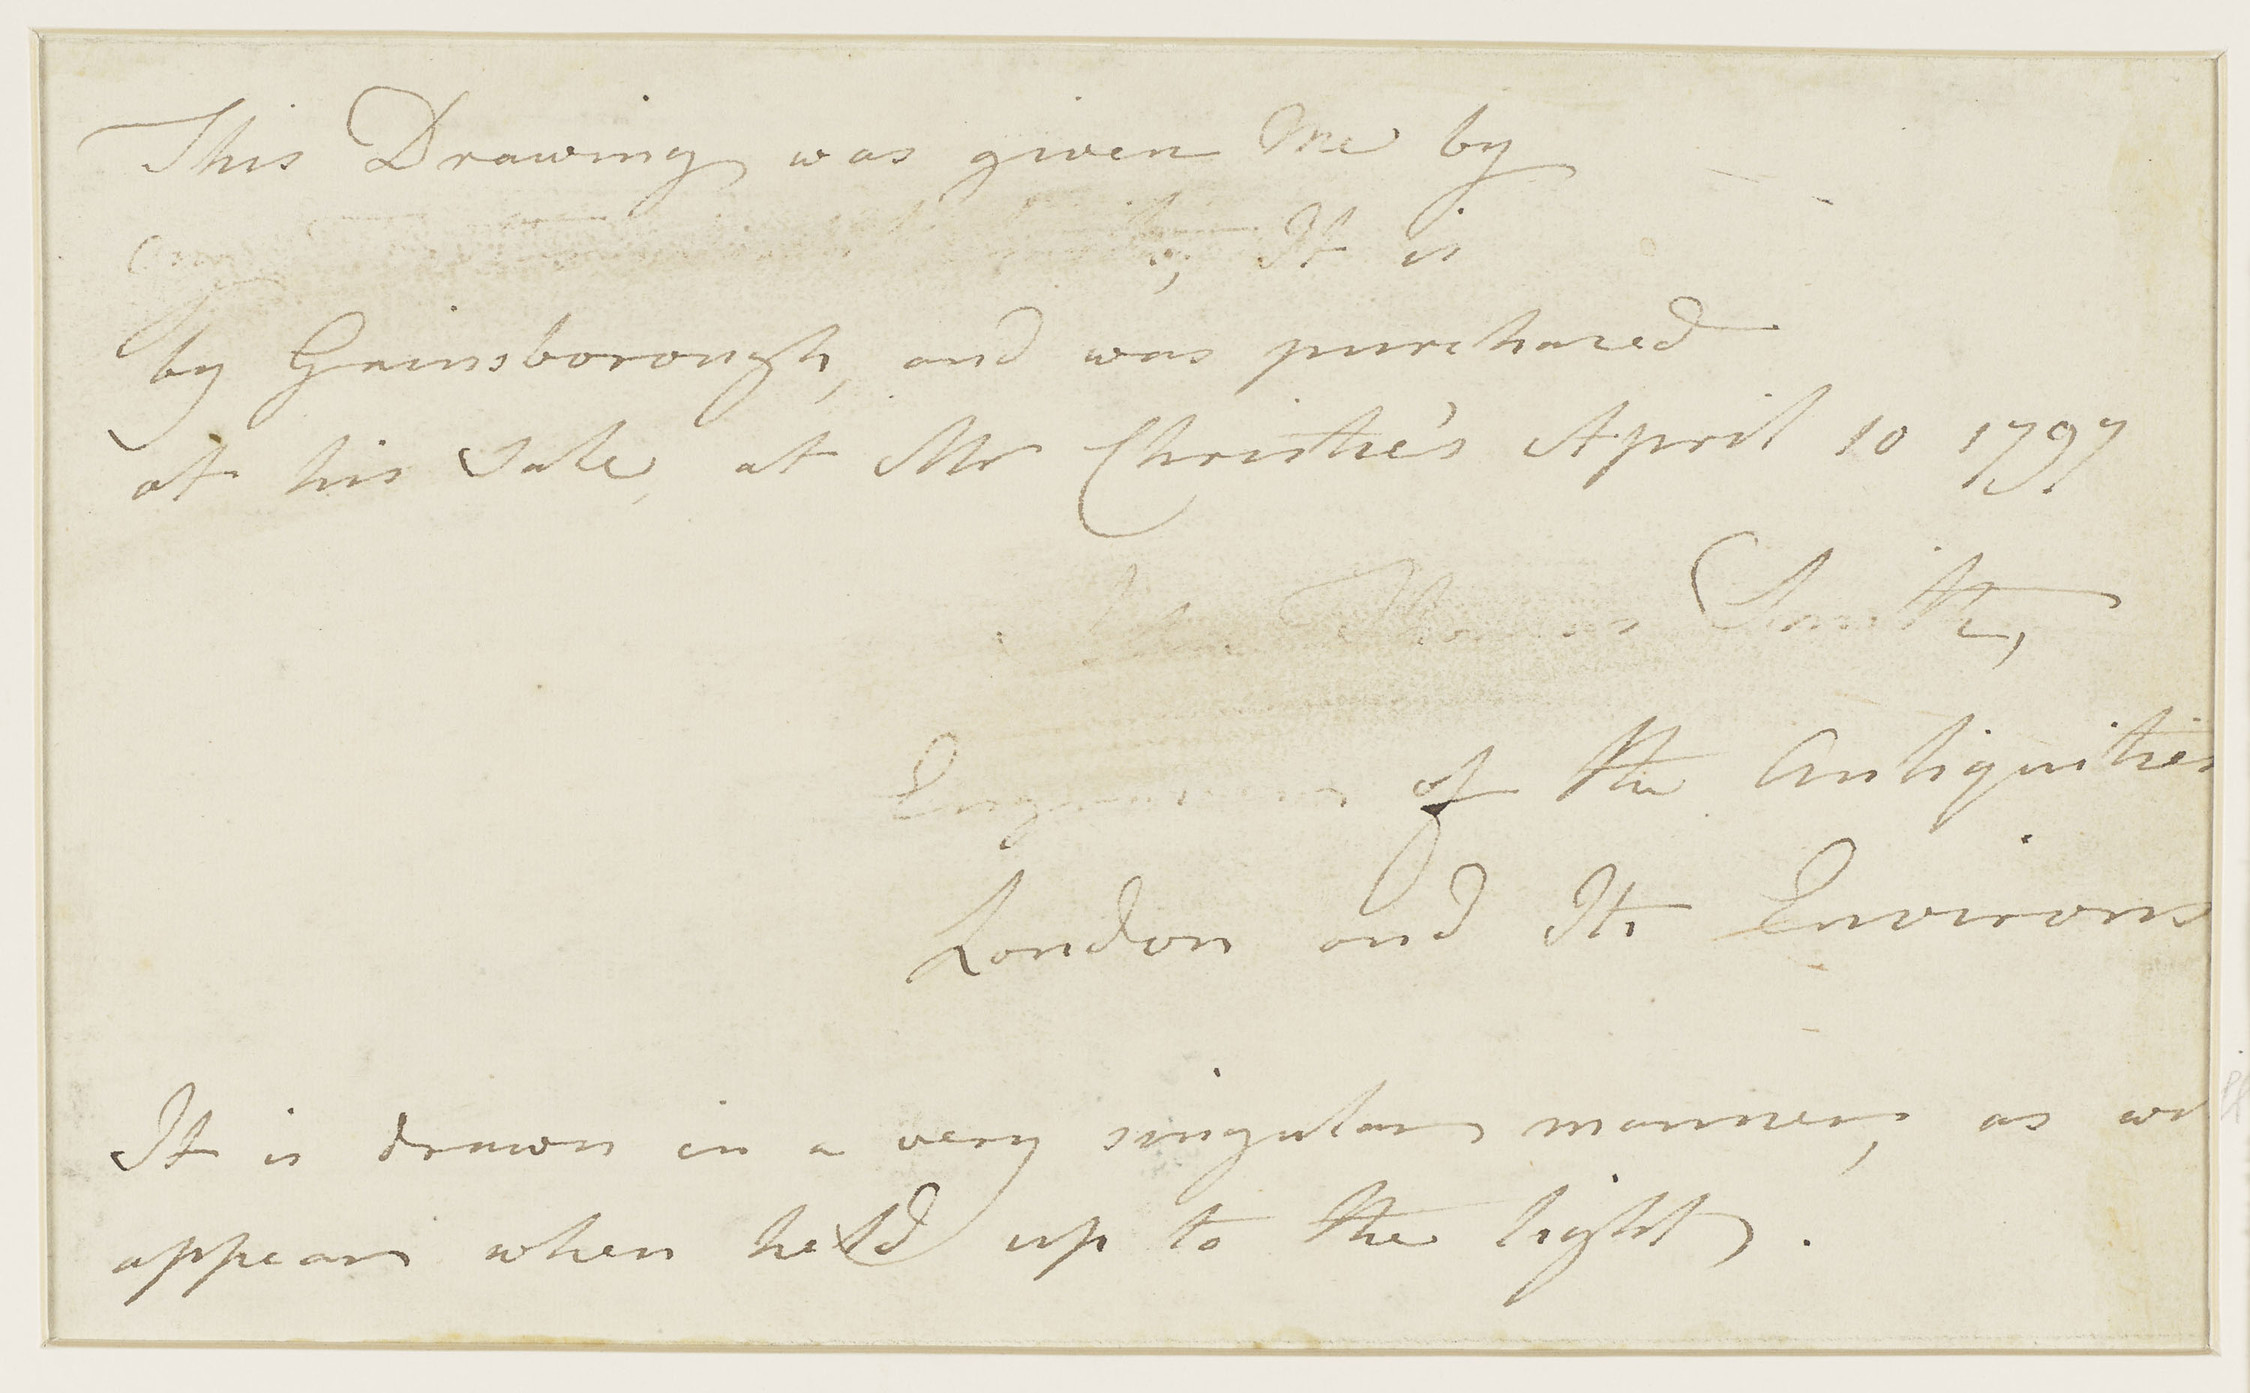 This Drawing was given Me by
It is
by Gainsborough, and was purchased
at his Sale, at Mr Christie's April 10 1797
John Thomas Smith,
Engraver of the Antiquities
London and Its Environs
It is drawn in a very singular manner, as
appear when held up to the light.